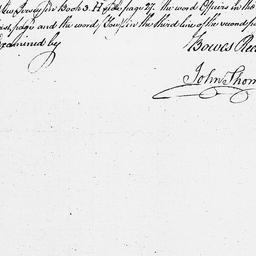 New Jersey in Book 3. H of page 27. the word Office in the
first page and the word (You) in the third line of the second p
Examined by
Bowes Ree
John Thom